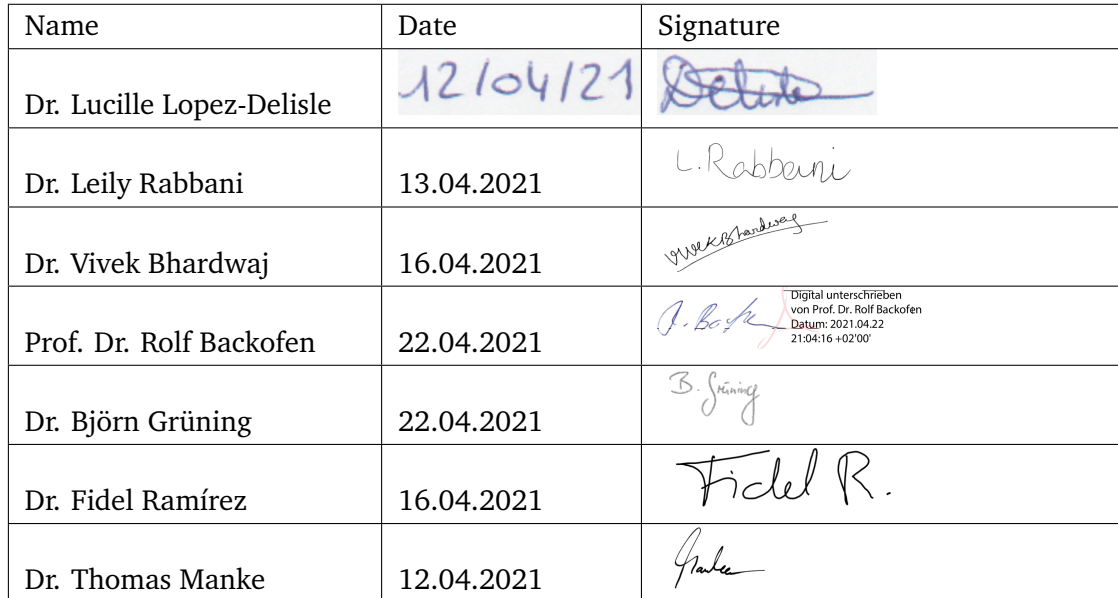 Name Date Signature
Dr. Lucille Lopez-Delisle 12/04/21 Delisle
Dr. Leily Rabbani 13.04.2021 L.Rabbani
Dr. Vivek Bhardwaj 16.04.2021 VivekBhardwaj
Prof. Dr. Rolf Backofen 22.04.2021 R. Backofen
Digital unterschrieben
von Prof. Dr. Rolf Backofen
Datum: 2021.04.22
21:04:16 +02'00'
Dr. Björn Grüning 22.04.2021 B. Grüning
Dr. Fidel Ramírez 16.04.2021 Fidel R.
Dr. Thomas Manke 12.04.2021 Manke